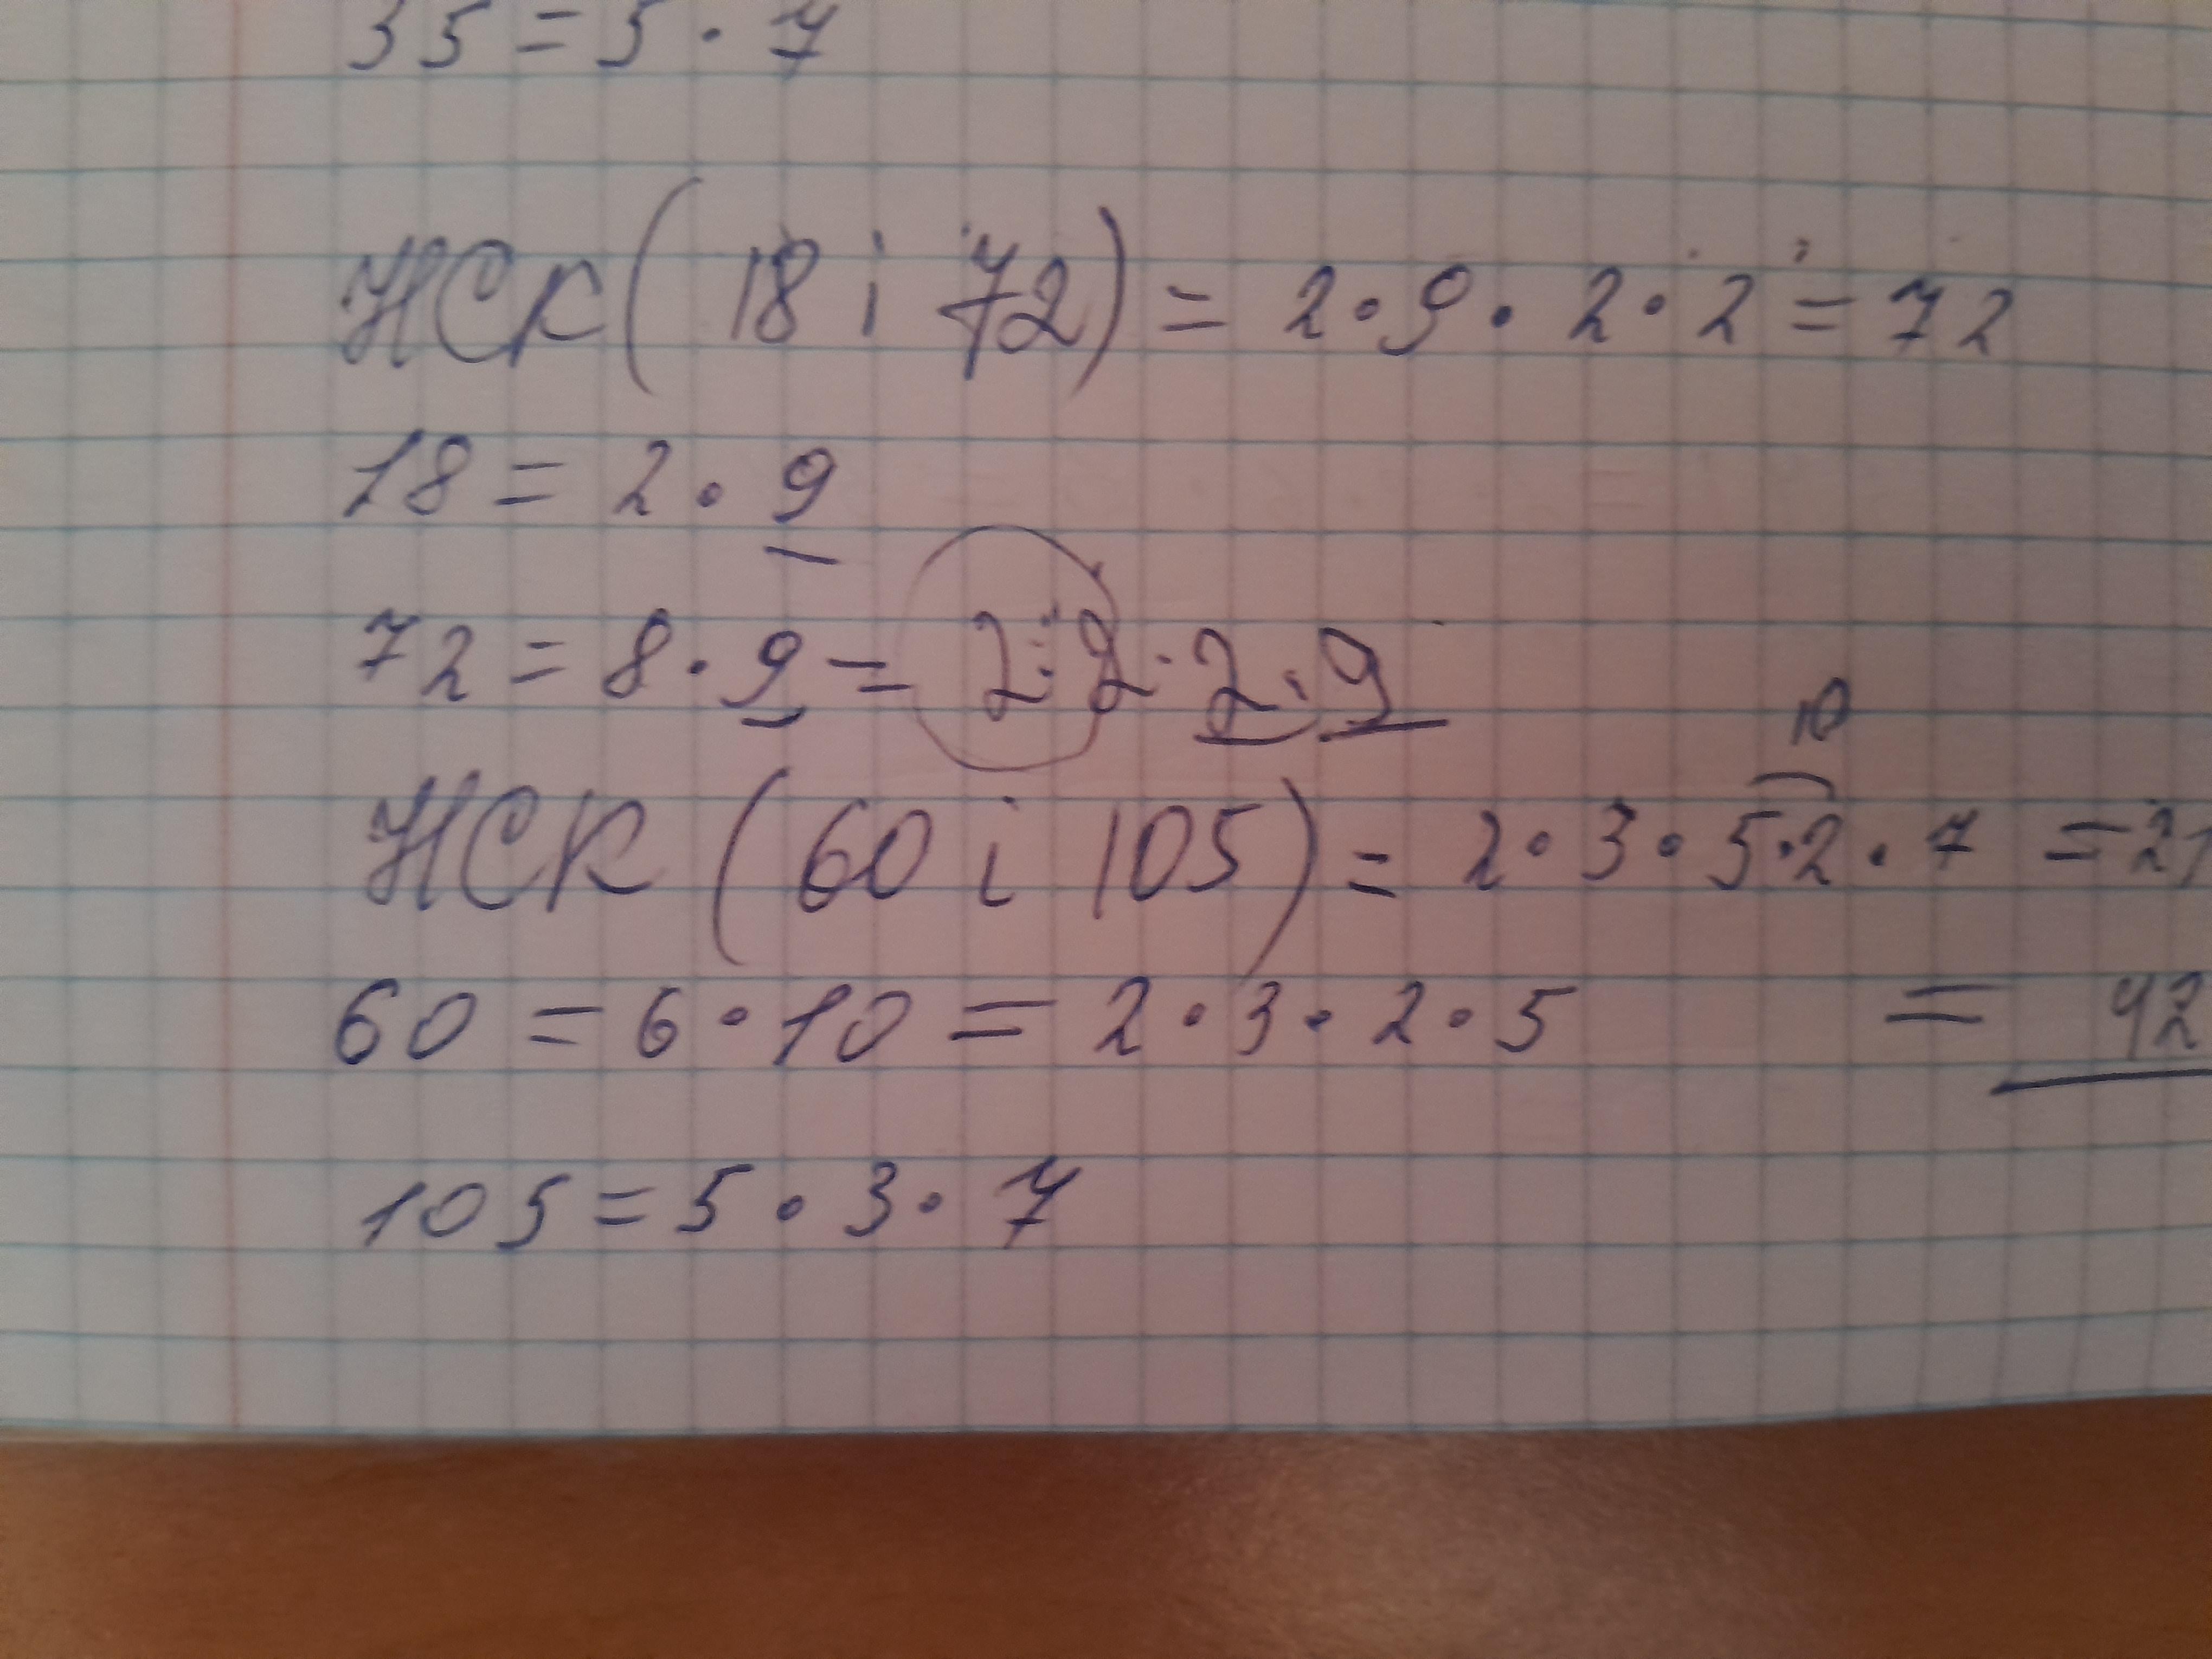 35 = 5 · 7
НСК ( 18 і 72 ) = 2 · 9 · 2 · 2 = 72
18 = 2 · 9
72 = 8 · 9 = 2 · 2 · 2 · 9
10
НСК ( 60 і 105 ) = 2 · 3 · 5 · 2 · 7 = 21
60 = 6 · 10 = 2 · 3 · 2 · 5 = 42
105 = 5 · 3 · 7